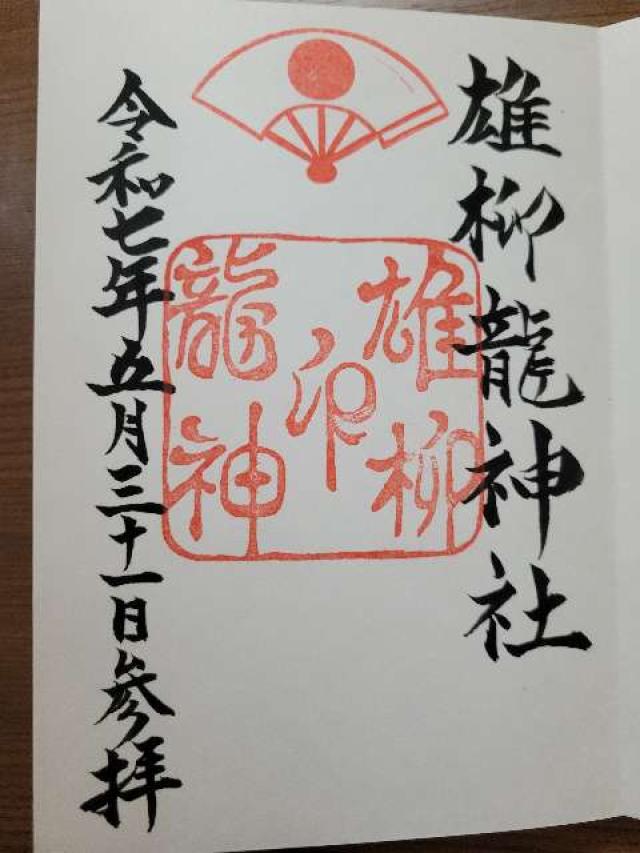 雄柳龍神社
雄柳
印
龍神
令和七年五月三十一日参拝